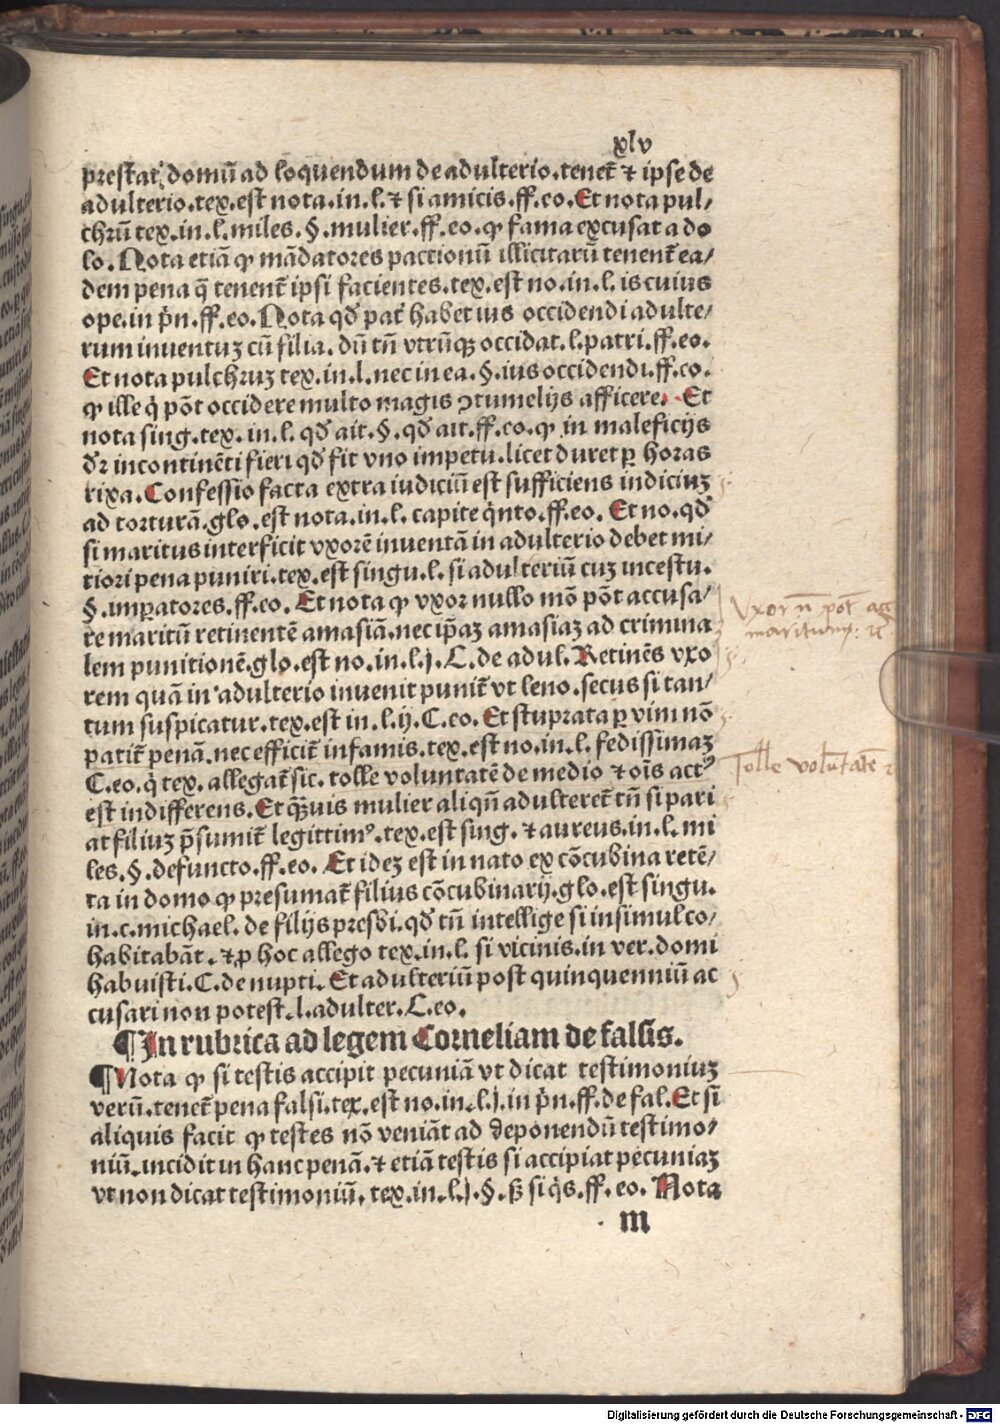 xlv
prestat domū ad loquendum de adulterio.tenet̄ ⁊ ipse de
adulterio.tex.est nota.in.l.⁊ si amicis.ff.eo.Et nota pul/
chrū tex.in.l.miles.§.mulier.ff.eo.ꝙ fama excusat a do
lo.Nota etiā ꝙ mādatores pactionū illicitarū tenent̄ ea/
dem pena q̄ tenent̄ ipsi facientes.tex.est no.in.l.is cuius
ope.in p̄n.ff.eo.Nota qd̓ pat̓ habet ius occidendi adulte/
rum inuentuꝫ cū filia.dū tn̄ vtrūqꝫ occidat.l.patri.ff.eo.
Et nota pulchruꝫ tex.in.l.nec in ea.§.ius occidendi.ff.eo.
ꝙ ille q̇ pōt occidere multo magis ꝯtumelijs afficere. Et
nota sing.tex.in.l.qd̓ ait.§.qd̓ ait.ff.eo.ꝙ in maleficijs
d̓r incontinēti fieri qd̓ fit vno impetu.licet duret ꝑ horas
rixa.Confessio facta extra iudiciū est sufficiens indiciuꝫ
ad torturā.glo.est nota.in.l.capite q̇nto.ff.eo. Et no.qd̓
si maritus interficit vxorē inuentā in adulterio debet mi/
tiori pena puniri.tex.est singu.l.si adulteriū cuꝫ incestu.
§.imꝑatores.ff.eo. Et nota ꝙ vxor nullo mō pōt accusa/
re maritū retinentē amasiā.nec ip̄aꝫ amasiaꝫ ad crimina
lem punitionē.glo.est no.in.l.j.C.de adul.Retinēs vxo
rem quā in adulterio inuenit punit̄ vt leno.secus si tan/
tum suspicatur.tex.est in.l.ij.C.eo.Et stuprata ꝑ vim nō
patit̄ penā.nec efficit̄ infamis.tex.est no.in.l.fedissimaꝫ
C.eo.q̇ tex.allegat̄ sic.tolle voluntatē de medio ⁊ oīs actꝰ
est indifferens.Et q̄ꝫuis mulier aliqn̄ adulteret̄ tn̄ si pari
at filiuꝫ p̄sumit̄ legittimꝰ.tex.est sing.⁊ aureus.in.l.mi
les.§.defuncto.ff.eo. Et ideꝫ est in nato ex cōcubina retē/
ta in domo ꝙ presumat̄ filius cōcubinarij.glo.est singu.
in.c.michael.de filijs presbi.qd̓ tn̄ intellige si insimul co/
habitabāt.⁊ ꝓ hoc allego tex.in.l.si vicinis.in ver.domi
habuisti.C.de nupti.Et adulteriū post quinquenniū ac
cusari non potest.l.adulter.C.eo.
¶In rubrica ad legem Corneliam de falsis.
¶Nota ꝙ si testis accipit pecuniā vt dicat testimoniuꝫ
verū.tenet̄ pena falsi.tex.est no.in.l.j.in p̄n.ff.de fal.Et si
aliquis facit ꝙ testes nō veniāt ad deponendū testimo/
niū.incidit in hanc penā.⁊ etiā testis si accipiat pecuniaꝫ
vt non dicat testimoniū.tex.in.l.j.§.ꝫ si q̇s.ff.eo. Nota
m
Vxor n̄ pōt ac
maritum: ⁊c̄
Tolle volūtatē
Digitalisierung gefördert durch die Deutsche Forschungsgemeinschaft - DFG